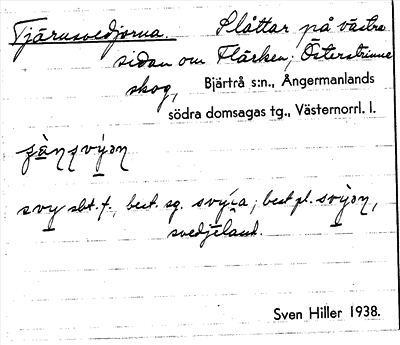 Tjärusvedjorna. Slåttar på västra
sidan om Flärken; Österstrinne
skog, Bjärtrå s:n., Ångermanlands
södra domsagas tg., Västernorrl. l.
svy sbt. f., best. sg. svyɪa; best pl. svỳən,
svedjeland.
Sven Hiller 1938.